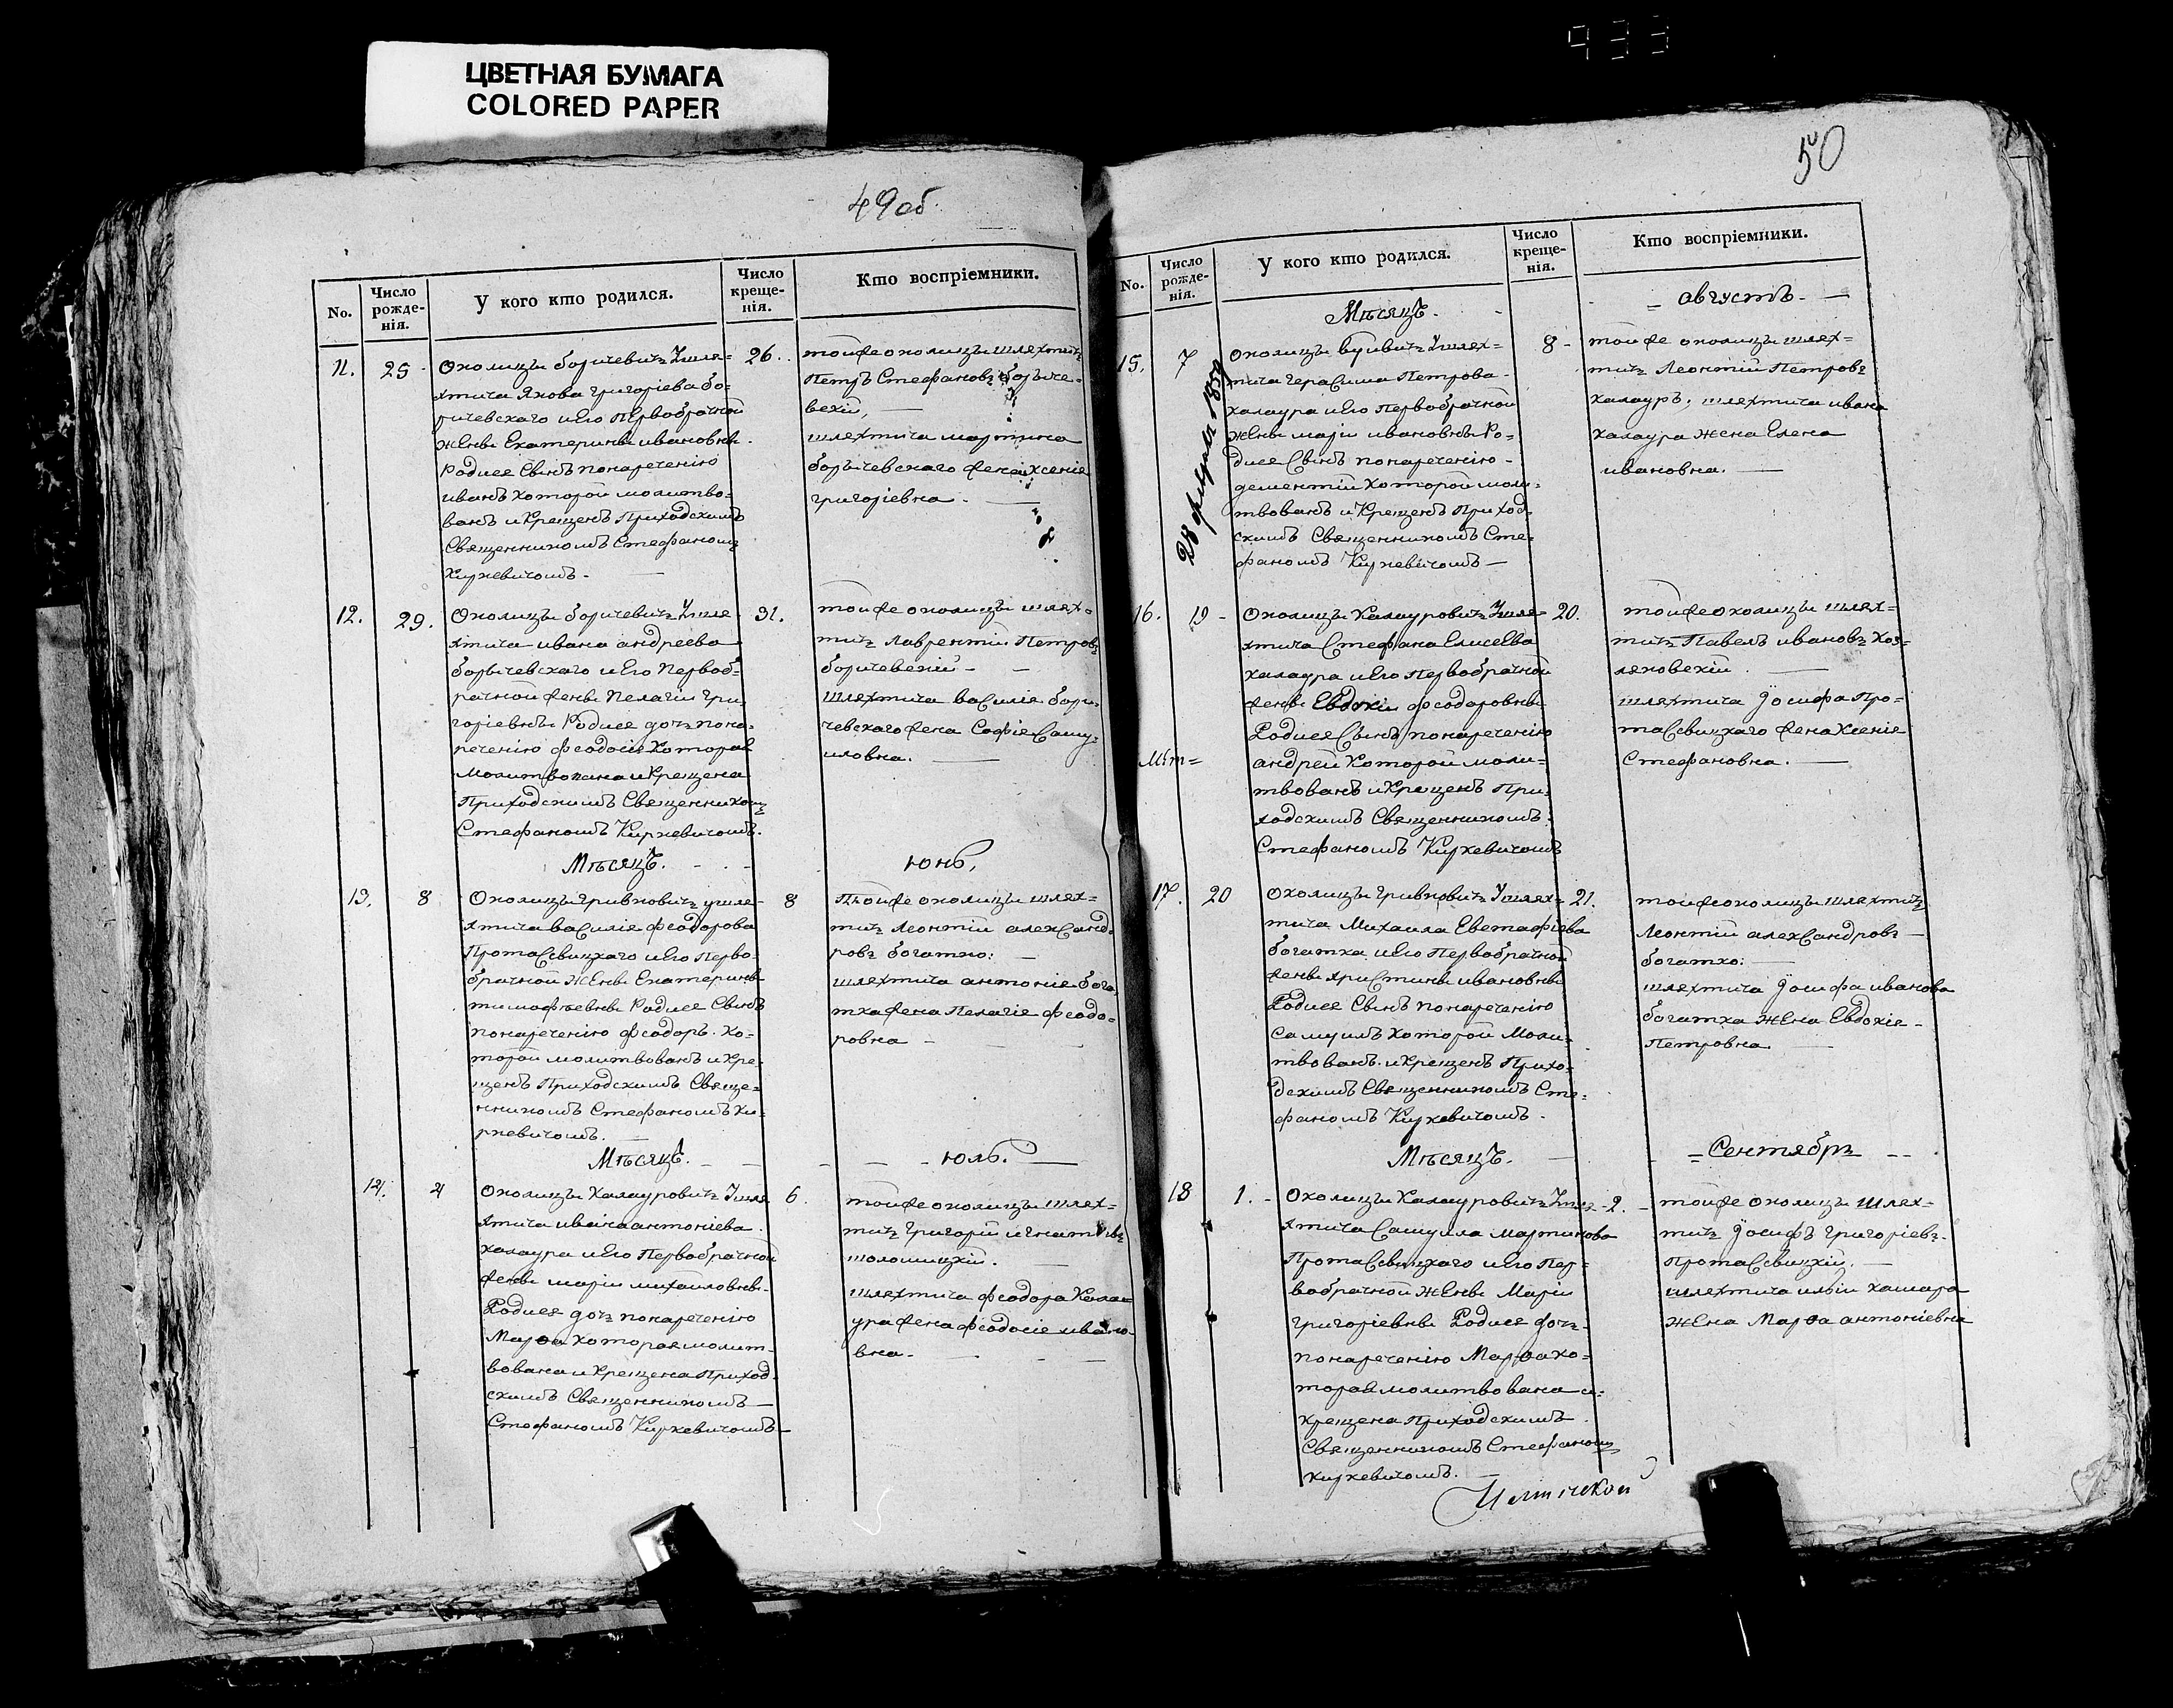 933
ЦВЕТНАЯ БУМАГА
COLORED PAPER
49 об
No.
Число рожде-нія.
У кого кто родился.
Число креще-нія.
Кто воспріемники.
11. 25 - Околицы боричевичъ Ушля=
хтича Якова григоріева бо=
ричевскаго иего Первобрачной
женѣ Екатеринѣ ивановнѣ.
Родися Сынъ понареченію
иванъ которой молитво=
ванъ икрещенъ Приходскимъ
Священникомъ Стефаномъ
Киркевичомъ. —
26. тойже околицы шляхтичъ
Петръ Стефановъ борыче=
вскій, —
шляхтича мартина
борычевскаго жена ксенія
григоріевна. —
12. 29. Околицы боричевичъ Ушля=
хтича ивана андреева
борычевскаго иего Первоб=
рачной женѣ Пелагіи гри=
горіевнѣ Родися дочь пона=
реченію феодосія которая
молитвована икрещена
Приходскимъ Священникомъ
Стефаномъ Киркевичомъ.
31. тойже околицы шлях=
тичъ Лаврентій Петровъ
боричевскій —
шляхтича василія бори=
чевскаго жена Софія Саму=
иловна. —
Мѣсяцъ. - - юнь,
13. 8 Околицы гривковичъ ушля=
хтича василія феодорова
Протасевицкаго иего Перво=
брачной женѣ Екатеринѣ
тимофѣевнѣ Родися Сынъ
понареченію феодоръ. ко=
торой молитвованъ икре=
щенъ Приходскимъ Свяще=
нникомъ Стефаномъ Ки=
ркевичомъ. —
8 Тойже околицы шлях=
тичъ Леонтій александ=
ровъ богатко: —
шляхтича антонія бога
тка жена Пелагія феодо=
ровна - —
Мѣсяцъ. - — - — - юль. —
14. 4 Околицы Калауровичъ Ушля
хтича ивана антоніева
калаура иего Первобрачной
женѣ маріи михайловнѣ.
Родися дочь понареченію
Марѳа которая молит=
вована икрещена Приход=
скимъ Священникомъ —
Стефаномъ Киркевичомъ —
6. тойже околицы шлях=
тичъ григорій игнатіевъ
шоломицкій. —
шляхтича феодора Кала
ура жена феодосія ивано=
вна. - - —
50
No.
Число рожде-нія.
У кого кто родился.
Число креще-нія.
Кто воспріемники.
Мѣсяцъ. - - = августъ. —
15. 7 Околицы вуйвичъ Ушлях=
тича герасима Петрова
калаура иего Первобрачной
женѣ маріи ивановнѣ Ро=
дися Сынъ понареченію -
дементій которой моли=
твованъ икрещенъ Приход=
скимъ Священникомъ Сте=
фаномъ Киркевичомъ —
28 февраля 1859
8 - тойже околицы шлях=
тичъ Леонтій Петровъ
калауръ; шляхтича ивана
калаура жена Елена
ивановна. —
16. 19 - Околицы Калауровичъ Ушля=
хтича Стефана Елисеева
калаура иего Первобрачной
женѣ Евдокіи феодоровнѣ
Родися Сынъ понареченію
андрей которой моли=
твованъ икрещенъ При=
ходскимъ Священникомъ.
Стефаномъ Киркевичомъ
20. тойже околицы шлях=
тичъ Павелъ ивановъ коз=
ляковскій. —
шляхтича Іосифа Про=
тасевицкаго жена Ксенія
Стефановна. —
17. 20 Околицы гривковичъ Ушлях=
тича Михаила Евстафіева
богатка иего Первобрачной
женѣ христинѣ ивановнѣ
Родися Сынъ понареченію
самуилъ которой Моли=
твованъ. икрещенъ Прихо=
дскимъ Священникомъ Сте=
фаномъ Киркевичомъ.
21. тойже околицы шляхтичъ
Леонтій александровъ —
богатко: —
шляхтича Іосифа иванова
богатка жена Евдокія -
Петровна. —
Мѣсяцъ. — - = Сентябрь - -
18 1. - Околицы Калауровичъ Ушля
хтича Самуила мартинова
Протасевицкаго иего Пер=
вобрачной женѣ Маріи
григоріевнѣ Родися дочь=
понареченію Марѳа ко=
торая молитвована и=
крещена Приходскимъ
Священникомъ Стефаномъ
Киркевичомъ. —
- 2. - тойже околицы шлях=
тичъ Іосифъ григоріевъ
Протасевицкій. —
шляхтича иліи кашара
жена Марѳа антоніевна